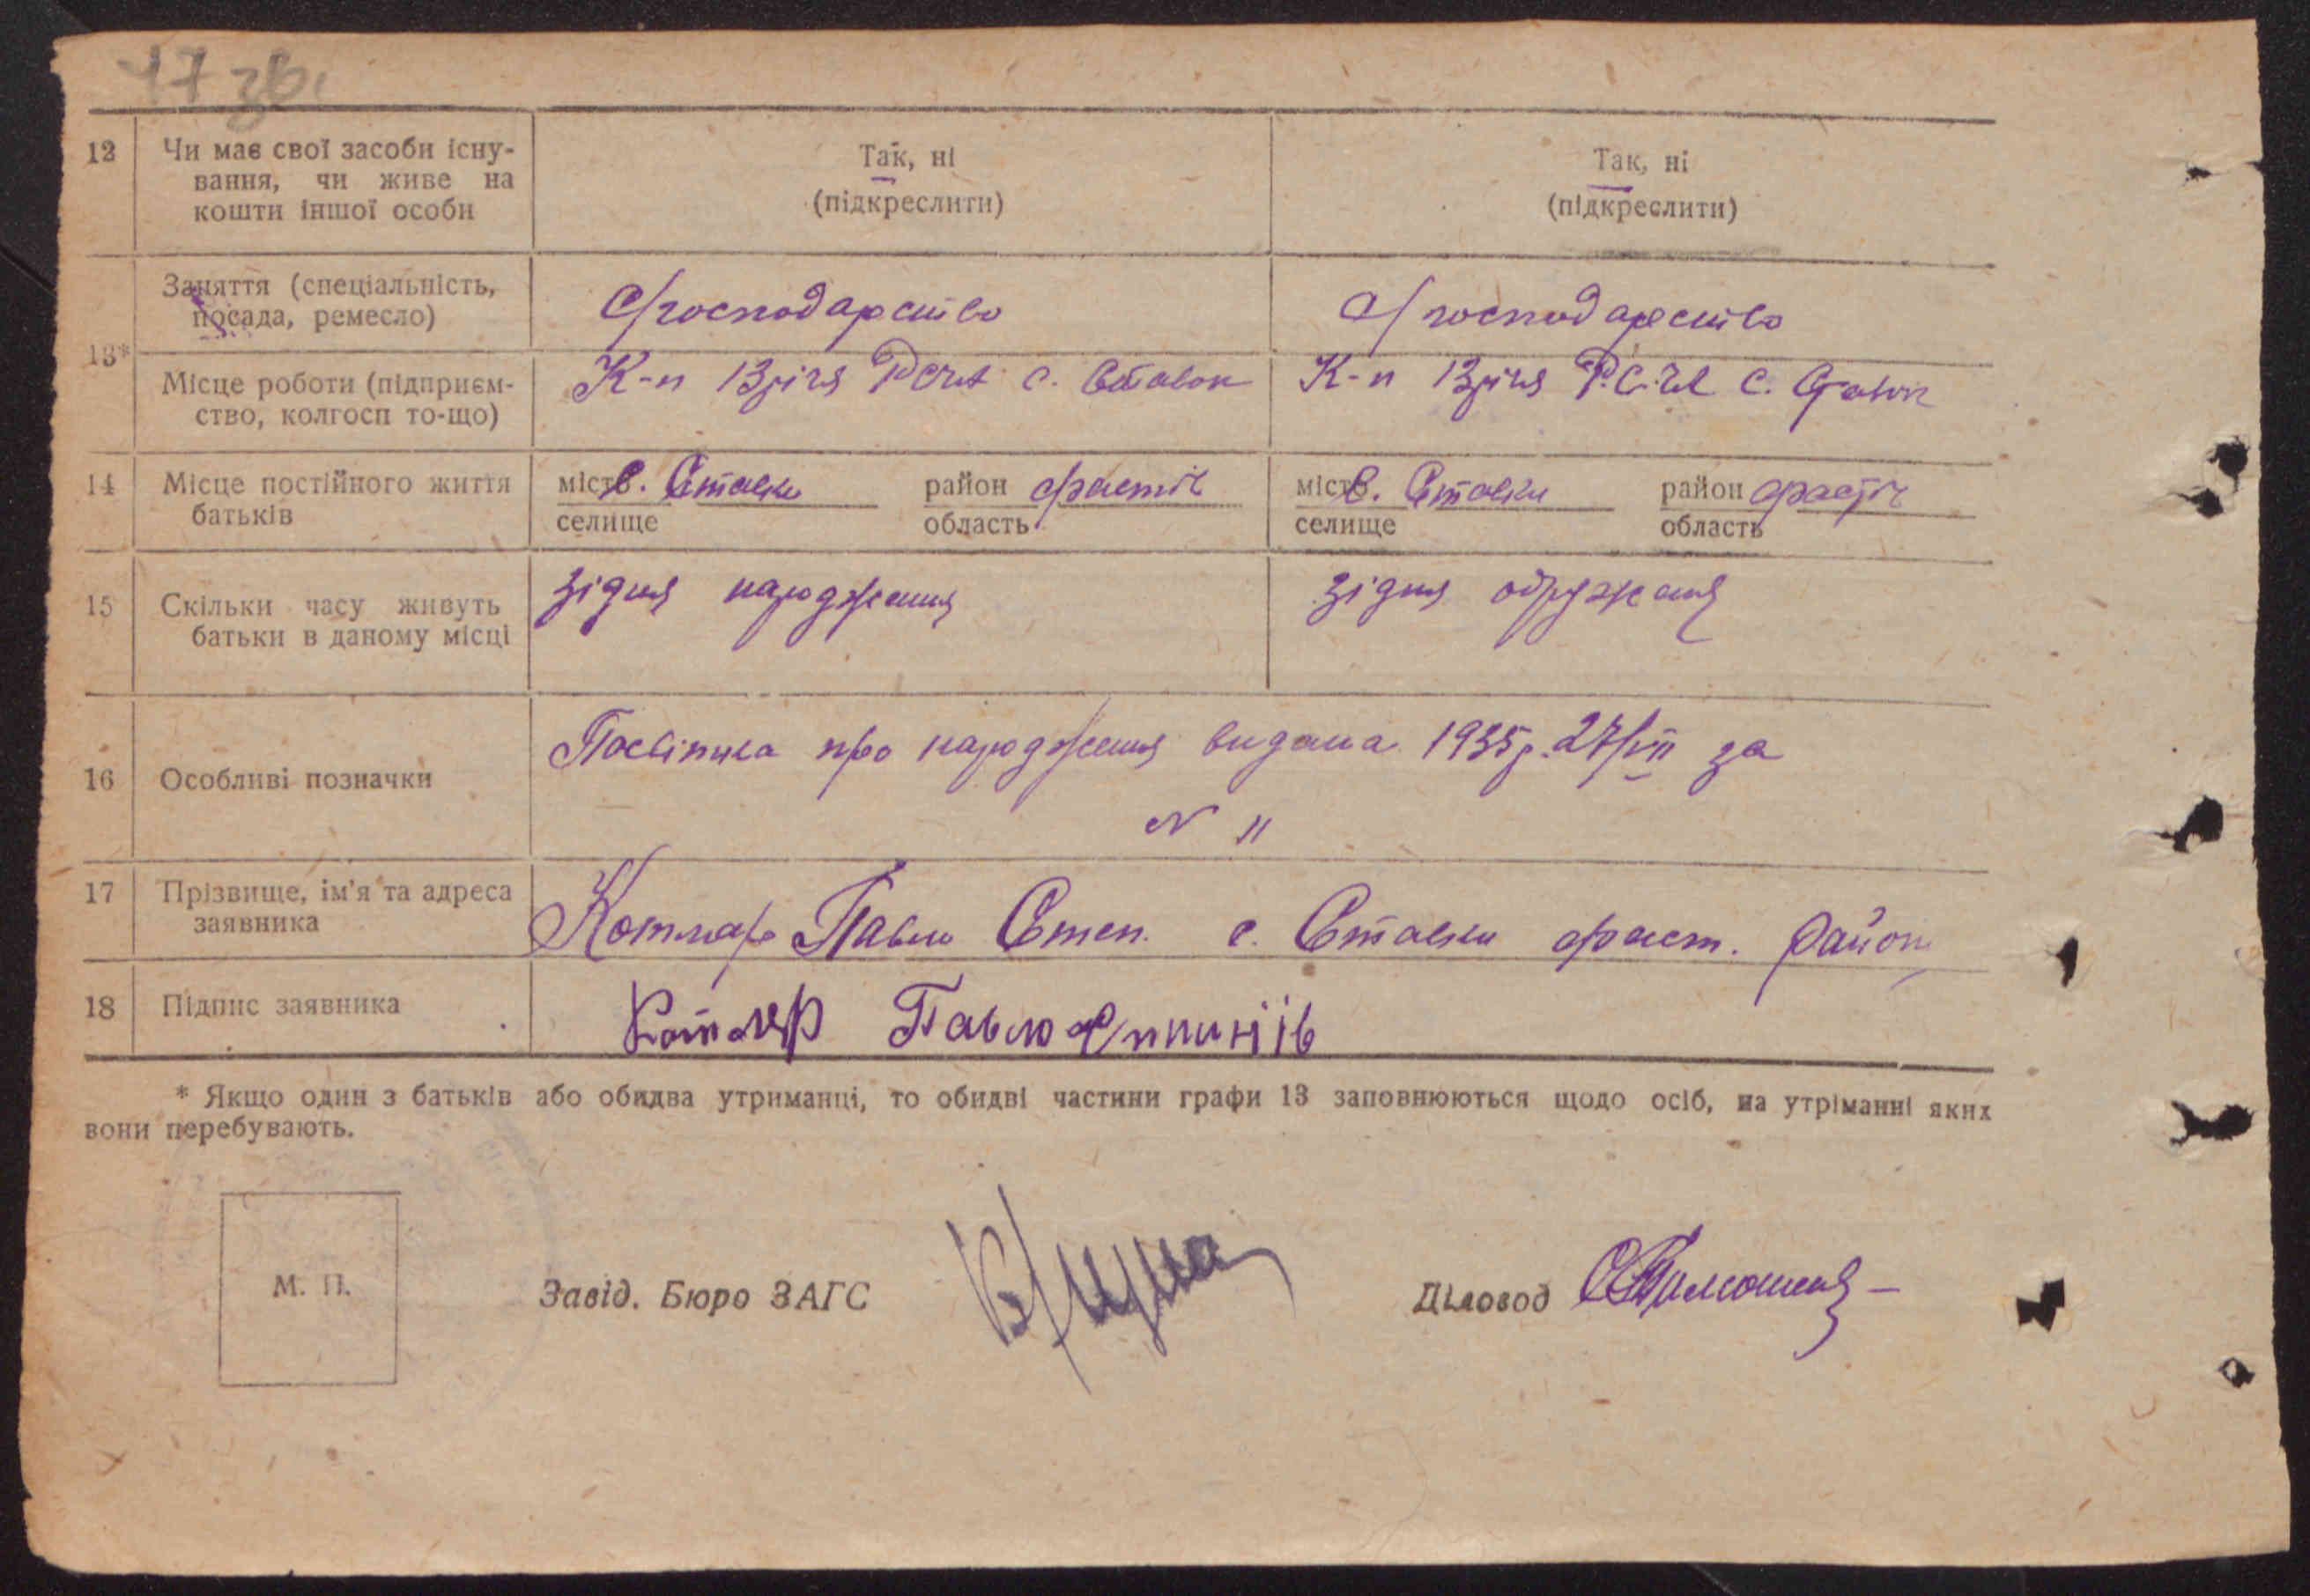 17 зв.
12 Чи має свої засоби існу-
вання, чи живе на
кошти іншої особи
Так, ні
(підкреслити)
Так, ні
(підкреслити)
13*
Заняття (спеціальність,
посада, ремесло)
с/господарство
с/господарство
Місце роботи (підприєм-
ство, колгосп то-що)
К-п 13річя РСЧА с. Ставок
К-п 13річя Р.С.ЧА с. Ставок
14 Місце постійного життя
батьків
місто с. Ставки район фастів
селище область
місто с. Ставки район фастів
селище область
15 Скільки часу живуть
батьки в даному місці
зідня народження
зідня одруженя
16 Особливі позначки
Посвітка про народження видана 1935р. 27/VII за
№ 11
17 Прізвище, ім'я та адреса
заявника
Котляр Павло Степ. с. Ставки фаст. район
18 Підпис заявника
Котляр Павло
* Якщо один з батьків або обидва утриманці, то обидві частини графи 13 заповнюються щодо осіб, на утріманні яких
вони перебувають.
М. П.
Завід. Бюро ЗАГС
Діловод